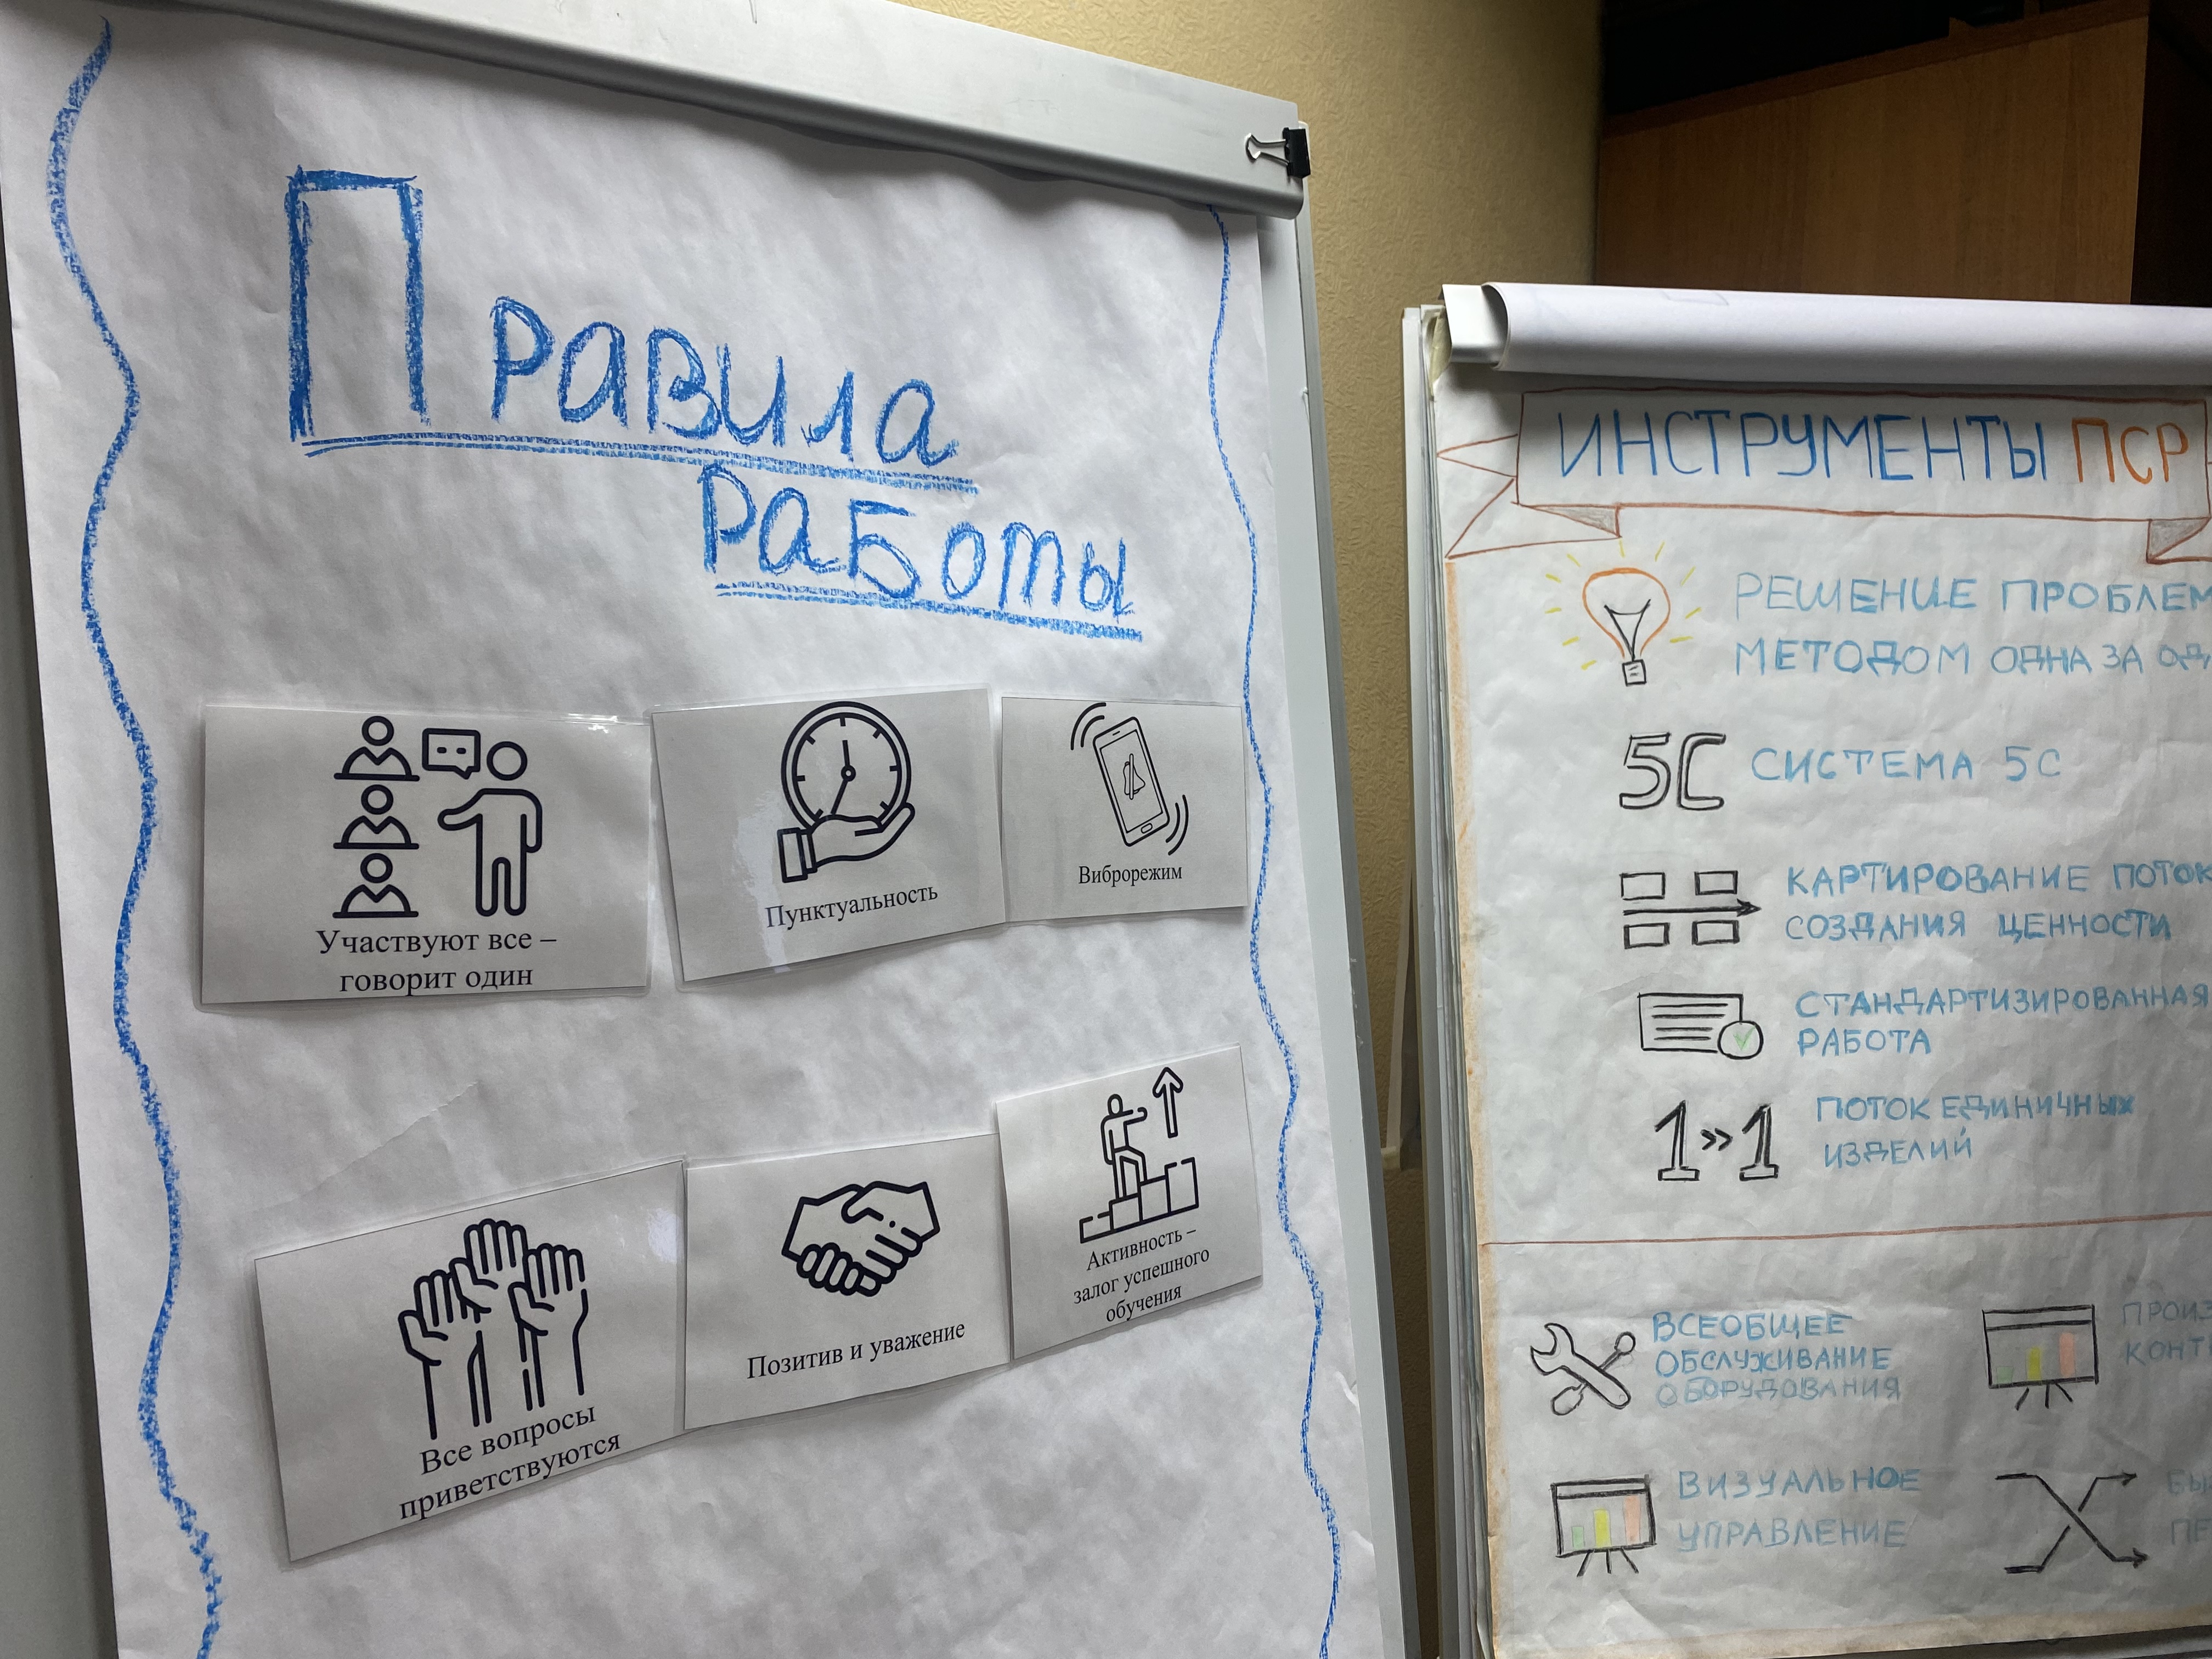 Правила
работы
Участвуют все –
говорит один
Пунктуальность
Виброрежим
Все вопросы
приветствуются
Позитив и уважение
Активность –
залог успешного
обучения
ИНСТРУМЕНТЫ ПСР
РЕШЕНИЕ ПРОБЛЕМ
МЕТОДОМ ОДНА ЗА
5С СИСТЕМА 5С
КАРТИРОВАНИЕ
СОЗДАНИЯ ЦЕННОСТИ
СТАНДАРТИЗИРОВАННАЯ
РАБОТА
1»1 ПОТОК ЕДИНИЧНЫХ
ИЗДЕЛИЙ
ВСЕОБЩЕЕ
ОБСЛУЖИВАНИЕ
ОБОРУДОВАНИЯ
ВИЗУАЛЬНОЕ
УПРАВЛЕНИЕ